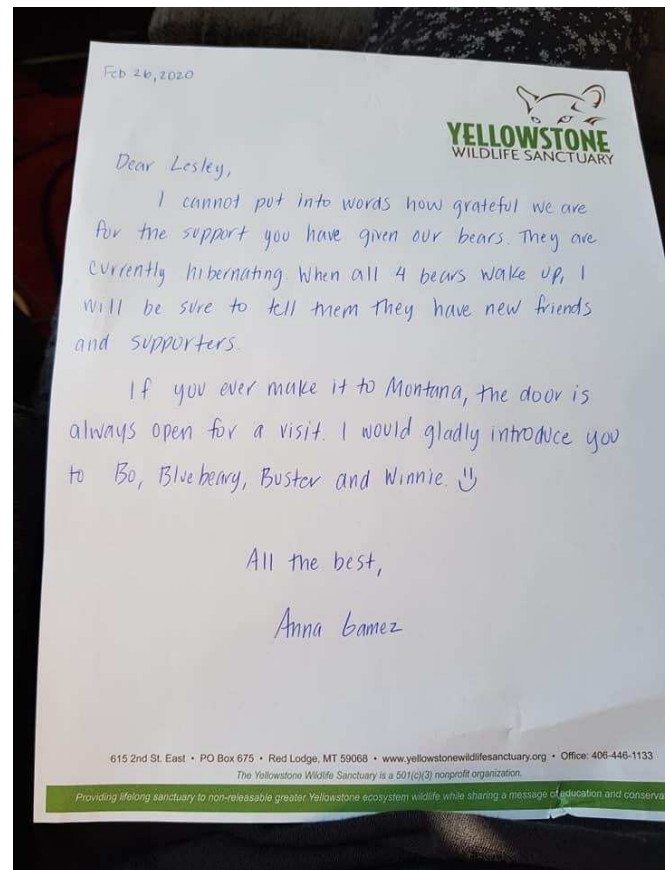 Feb 26, 2020
YELLOWSTONE
WILDLIFE SANCTUARY
Dear Lesley,
I cannot put into words how grateful we are
for the support you have given our bears. They are
currently hibernating. When all 4 bears wake up, I
will be sure to tell them they have new friends
and supporters.
If you ever make it to Montana, the door is
always open for a visit. I would gladly introduce you
to Bo, Bluebeary, Buster and Winnie.
All the best,
Anna Gamez
615 2nd St. East • PO Box 675 • Red Lodge, MT 59068 • www.yellowstonewildlifesanctuary.org • Office: 406-446-1133
The Yellowstone Wildlife Sanctuary is a 501(c)(3) nonprofit organization.
Providing lifelong sanctuary to non-releasable greater Yellowstone ecosystem wildlife while sharing a message of education and conserva